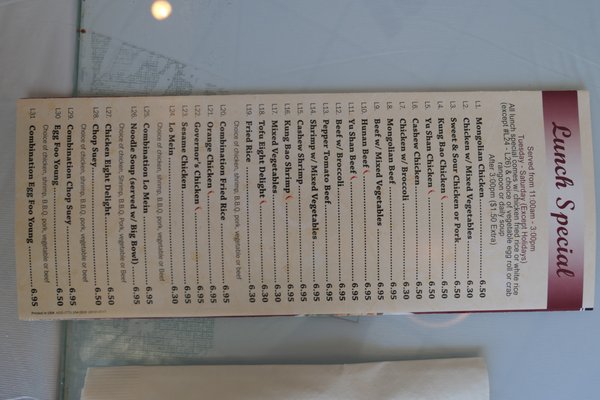 Lunch Special
Served from 11:00am - 3:00pm
Tuesday - Saturday (Except Holidays)
All lunch special comes w/ chicken fried rice or white rice
(except #L24 - L26) & choice of vegetable egg roll or crab
rangoon or daily soup
After 3:00pm ($1.50 Extra)
L1. Mongolian Chicken 6.50
L2. Chicken w/ Mixed Vegetables 6.50
L3. Sweet & Sour Chicken or Pork 6.50
L4. Kung Bao Chicken 6.50
L5. Yu Shan Chicken 6.50
L6. Cashew Chicken 6.50
L7. Chicken w/ Broccoli 6.50
L8. Mongolian Beef 6.95
L9. Beef w/ Mixed Vegetables 6.95
L10. Hunan Beef 6.95
L11. Yu Shan Beef 6.95
L12. Beef w/ Broccoli 6.95
L13. Pepper Tomato Beef 6.95
L14. Shrimp w/ Mixed Vegetables 6.95
L15. Cashew Shrimp 6.95
L16. Kung Bao Shrimp 6.95
L17. Mixed Vegetables 6.30
L18. Tofu Eight Delight 6.30
L19. Fried Rice 6.30
Choice of chicken, shrimp, B.B.Q. pork, vegetable or beef
L20. Combination Fried Rice 6.95
L21. Orange Chicken 6.95
L22. Governor's Chicken 6.95
L23. Sesame Chicken 6.95
L24. Lo Mein 6.30
Choice of chicken, shrimp, B.B.Q. pork, vegetable or beef
L25. Combination Lo Mein 6.95
L26. Noodle Soup (served w/ Big Bowl) 6.95
Choice of chicken, shrimp, B.B.Q. pork, vegetable or beef
L27. Chicken Eight Delight 6.50
L28. Chop Suey 6.50
Choice of chicken, shrimp, B.B.Q. pork, vegetable or beef
L29. Combination Chop Suey 6.95
L30. Egg Foo Young 6.50
Choice of chicken, shrimp, B.B.Q. pork, vegetable or beef
L31. Combination Egg Foo Young 6.95